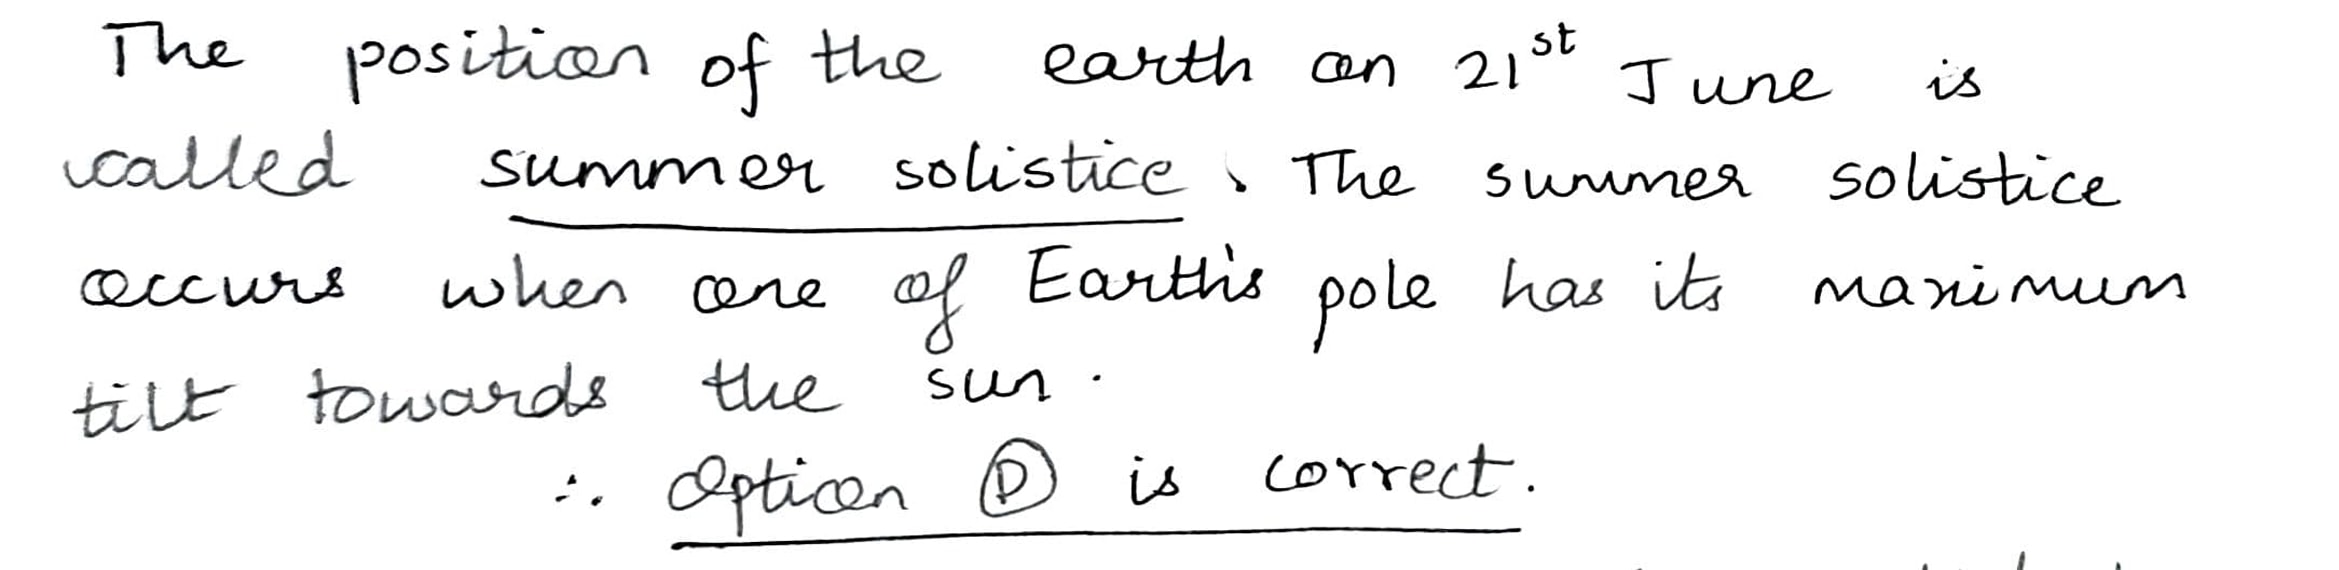 The position of the earth on 21st June is
called summer solistice. The summer solistice
occurs when one of Earth's pole has its maximum
tilt towards the sun.
∴ Option D is correct.